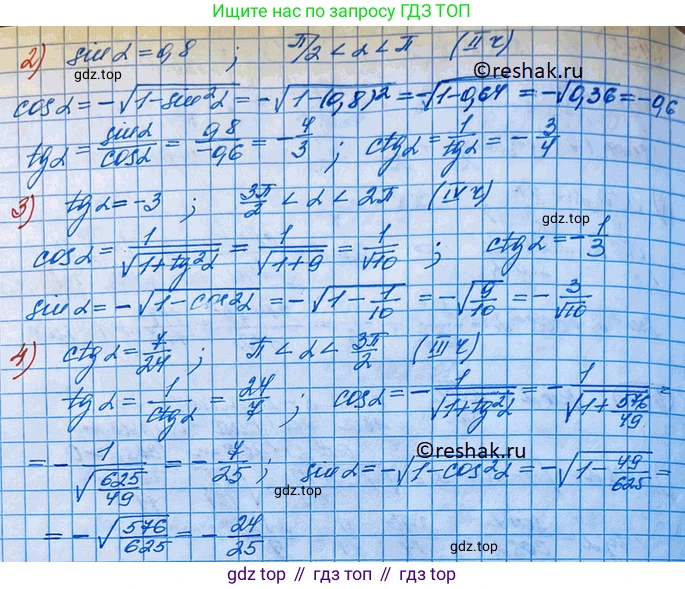 Ищите нас по запросу ГДЗ ТОП
2) sin α = 0,8 ; π/2 < α < π (II ч)
gdz.top
©reshak.ru
cos α = -√(1-sin²α) = -√(1-(0,8)²) = -√(1-0,64) = -√0,36 = -0,6
tg α = sin α/cos α = 0,8/-0,6 = -4/3 ; ctg α = 1/tg α = -3/4
3) tg α = -3 ; 3π/2 < α < 2π (IV ч)
gdz.top
cos α = 1/√(1+tg²α) = 1/√(1+9) = 1/√10 ; ctg α = -1/3
sin α = -√(1-cos²α) = -√(1-1/10) = -√(9/10) = -3/√10
4) ctg α = 7/24 ; π < α < 3π/2 (III ч)
tg α = 1/ctg α = 24/7 ; cos α = -1/√(1+tg²α) = -1/√(1+576/49) =
©reshak.ru
= -1/√(625/49) = -7/25 ; sin α = -√(1-cos²α) = -√(1-49/625) =
gdz.top
= -√(576/625) = -24/25
gdz.top
gdz.top // гдз.топ // gdz.top